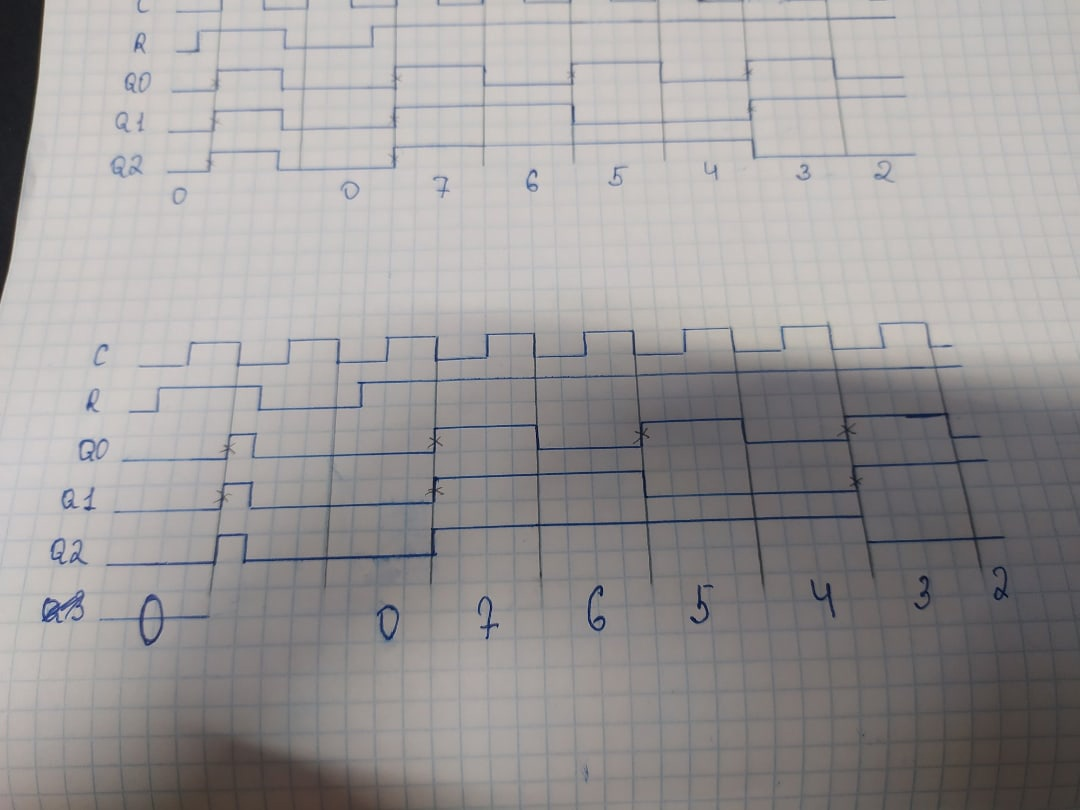 C
R
Q0
Q1
Q2
0 0 7 6 5 4 3 2
C
R
Q0
Q1
Q2
0 0 7 6 5 4 3 2